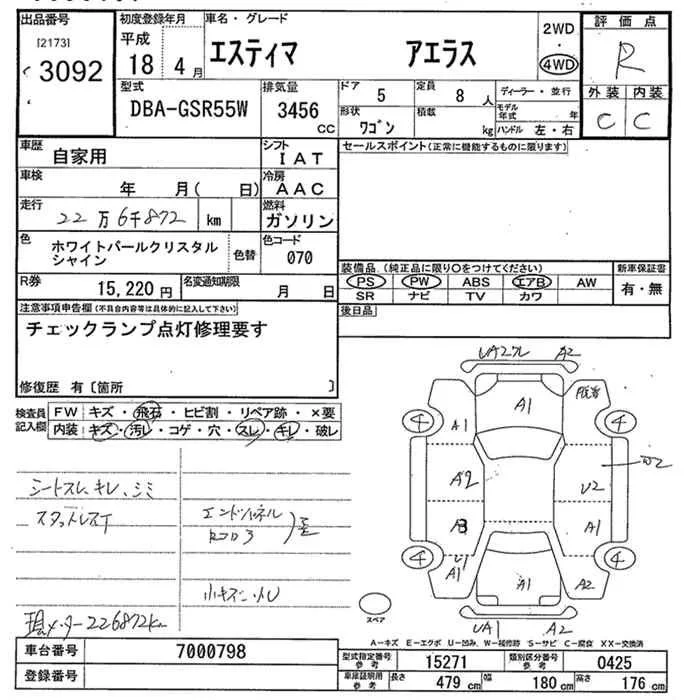 出品番号
[2173]
3092
初度登録年月
平成
18 4 月
車名・グレード
エスティマ アエラス
2WD
・
4WD
評価点
R
外装 内装
C C
型式
DBA-GSR55W
排気量
3456
cc
ドア
5
定員
8 人
形状
ワゴン
積載
kg
ディーラー・並行
モデル年式 年
ハンドル 左・右
車歴
自家用
シフト
IAT
車検
年 月( 日)
冷房
AAC
走行
22万6千872 km
燃料
ガソリン
色
ホワイトパールクリスタル
シャイン
色替
色コード
070
R券
15,220円
名変通知期限
月 日
セールスポイント(正常に機能するものに限ります)
装備品 (純正品に限り○をつけてください)
PS PW ABS エアB AW
SR ナビ TV カワ
新車保証書
有・無
後日品
注意事項申告欄(不具合内容等は具体的に記入して下さい)
チェックランプ点灯修理要す
修復歴 有〔箇所 〕
検査員
記入欄
FW キズ・飛石・ヒビ割・リペア跡・×要
内装 キズ・汚レ・コゲ・穴・スレ・キレ・破レ
シートスレ、キレ、シミ
スタットレスT
エンドパネル
コアロア3
小キズ、凹
現メーター226872km
UA2クレ A2
A1
A1
4 4
A2
U2
W2
A3
A1
U1
A1
4 4
A1
A2
UA1 A2
スペア
A-キズ E-エクボ U-凹み W-補修跡 S-サビ C-腐食 XX-交換済
車台番号 7000798
登録番号
型式指定番号
参考
15271
類別区分番号
参考
0425
車庫証明用
参考
長さ 479 cm 幅 180 cm 高さ 176 cm